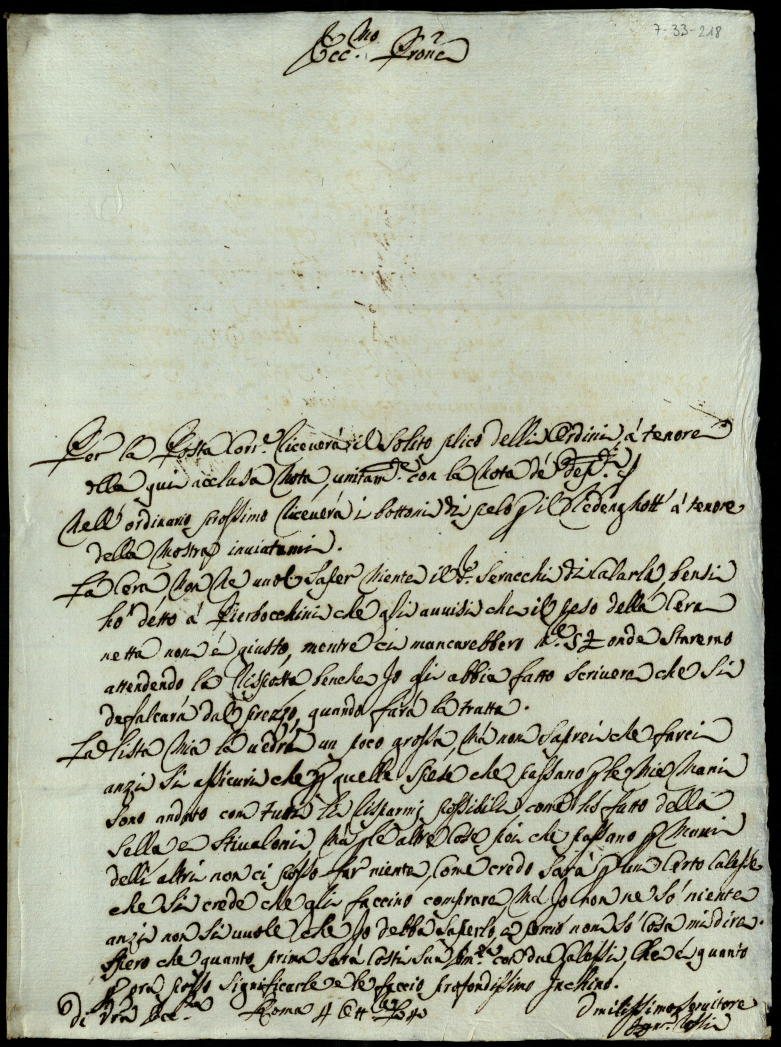 7-33-218
Ecc.mo Prone
Per la Posta Cor.e riceverà il Solito plico delli Ordini, à tenore
della qui acclusa Nota, unitam.e con la Nota dè
Nell'ordinario prossimo riceverà i bottoni di pelo p il Redenghott à tenore
della Mostra inviatami.
La Cera, Non Ne vuol Saper Niente il S.r Seracchi di Calarla, bensi
hò detto à Pierbocchini che gli avvisi che il peso della Cera
netta non è giusto, mentre ci mancarebbero onde Staremo
attendendo la Risposta benche Io gli abbia fatto Scrivere che Si
defalcarà dal prezzo, quando farà la tratta.
La lista Mia la vedrà un poco grossa, Mà non Saprei che farci
anzi Si assicuri che p quelle Spese che passano p le Mie Mani
Sono andato con tutti li risparmj possibili, come hò fatto della
Sella e Stivaloni, Mà p le altre Cose poi che passano p Mani
delli altri non ci posso far niente, Come credo Sarà p un Certo Calesse
che Si crede che gli faccino comprare, Mà Io non ne Sò niente
anzi non Si vuole che Io debba Saperlo, e perciò non Sò Cosa mi dire.
Spero che quanto prima Sarà Costì Sua con due Calessi, Che è quanto
p ora posso Significarle e le faccio profondissimo Inchino.
Di Vra Ecc.za Roma 4
Umilissimo Servitore